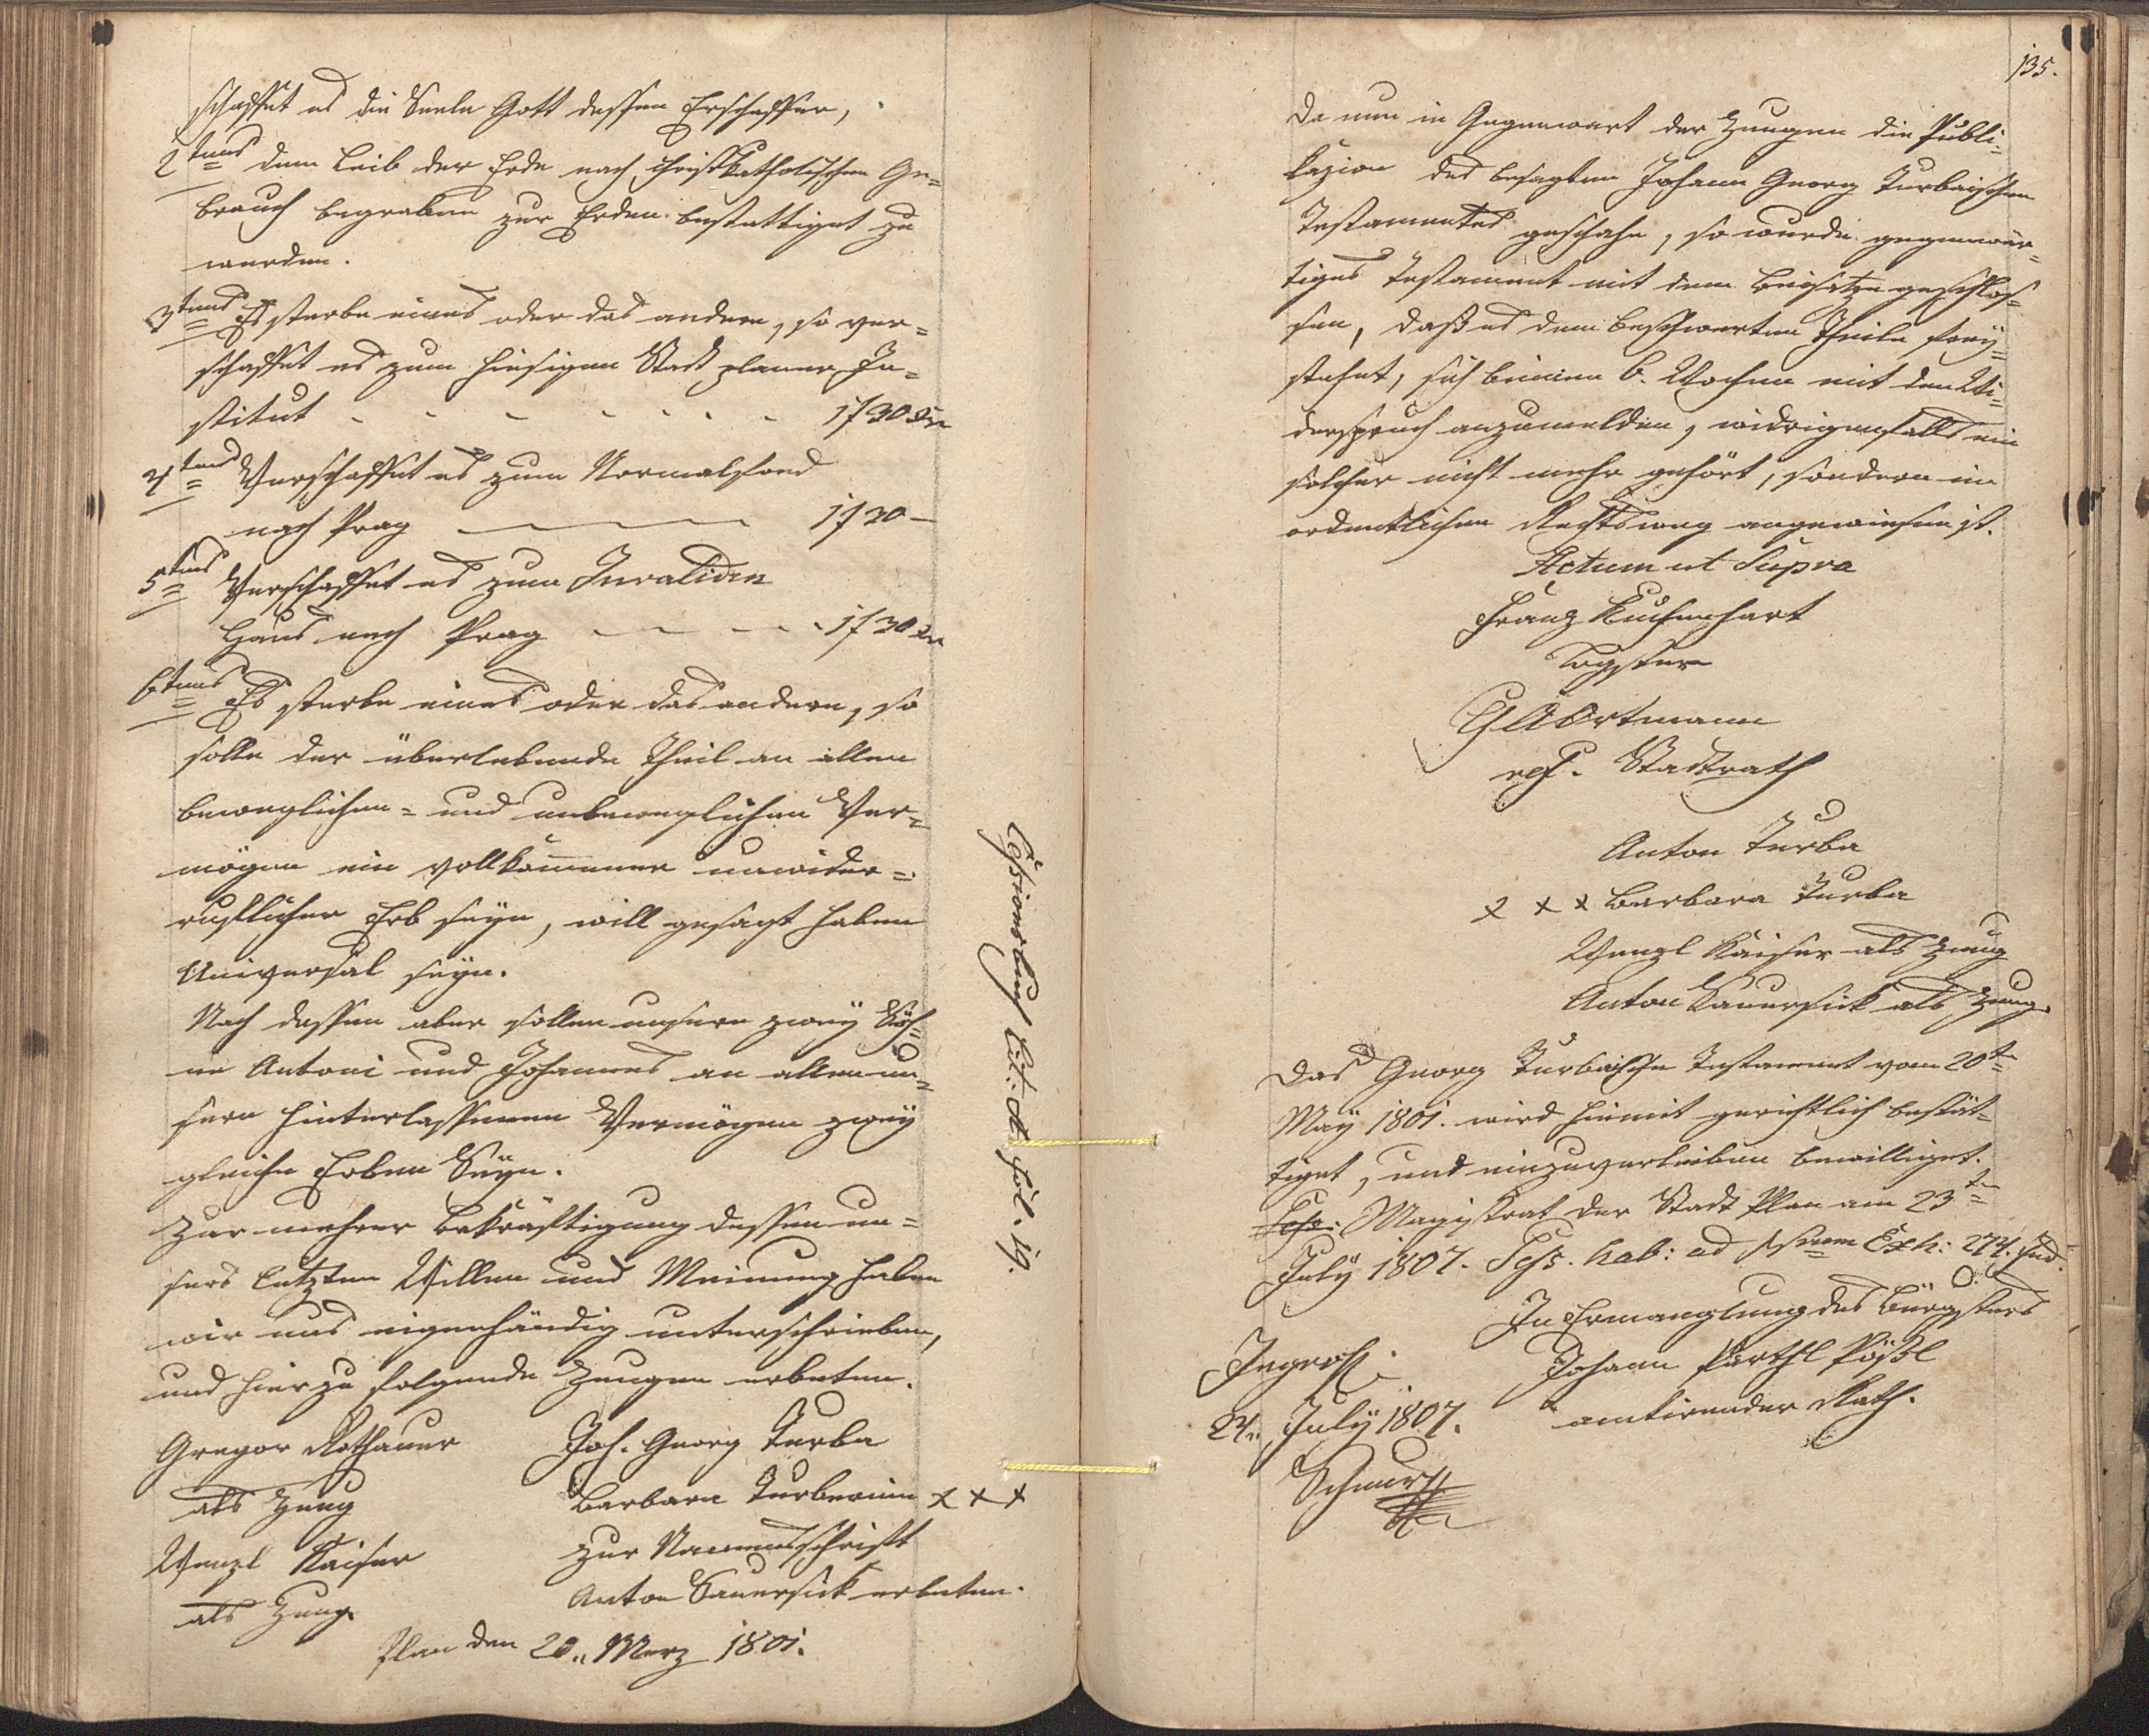 schaffet es die Seele Gott dessen Erschaffer,
2tens dem Leib der Erde nach christkatholischen Ge=
brauch begraben zur Erden bestattiget zu
werden.
3tens Es sterbe eines oder das andere, so ver=
schaffet es zum hiesigen Stadt planer In=
stitut - - - - - - - 1f 30 xr
4tens Verschaffet es zum Normalfond
nach Prag 1f 30 —
5tens Verschaffet es zum Invaliden
Haus nach Prag - - - - - 1f 30 xr
6tens Es sterbe eines oder das andere, so
solle der überlebende Theil an allen
beweglichen= und unbeweglichen Ver=
mögen ein vollkommener unwider=
ruflicher Erb seyn, will gesagt haben
Universal seyn.
Nach dessen aber sollen unsere zwey Söh=
ne Antoni und Johannes an allen un=
sern hinterlassenen Vermögen zwey
gleiche Erben Seyn.
Zur mehrer Bekräftigung dessen un=
sers letzten Willen und Meinung haben
wir uns eigenhändig unterschrieben,
und hierzu folgende Zeugen erbeten.
Gregor Rothauer Joh. Georg Turba
als Zeug Barbara Turbarinn x x x
Wenzl Kaiser zur Namensschrift
als Zeug. Anton Sauersick erbeten.
Plan den 20.. Merz 1801.
Cessionsbuch Lit: A fol. 19.
135.
Da nun in Gegenwart der Zeugen die Publi=
kazion des besagten Johann Georg Turbaischen
Testamentes geschahe, so wurde gegenwär=
tiges Testament mit dem Beisatze geschlos=
sen, daß es dem beschwerten Theile frey=
stehet, sich binnen 6. Wochen mit den Wi=
derspruch anzumelden, widrigenfalls ein
solcher nicht mehr gehört, sondern im
ordentlichen Rechtsweg angewiesen ist.
Actum ut Supra
Franz
Ortmann
Stadtrath
Anton Turba
x x x Barbara Turba
Wenzl Kaiser als Zeug
Anton Sauersick als Zeug.
Das Georg Turbaische Testament vom 20t
May 1801. wird hiemit gerichtlich bestät=
tiget, und einzuverleiben bewilliget.
Magistrat der Stadt Plan am 23t
July 1807. Sess. hab: ad Nrum Exh: 274. Jud.
In Ermanglung des Bürgsters
Ingross. Johann Pößl
24.. July 1807. amtirender Rath.